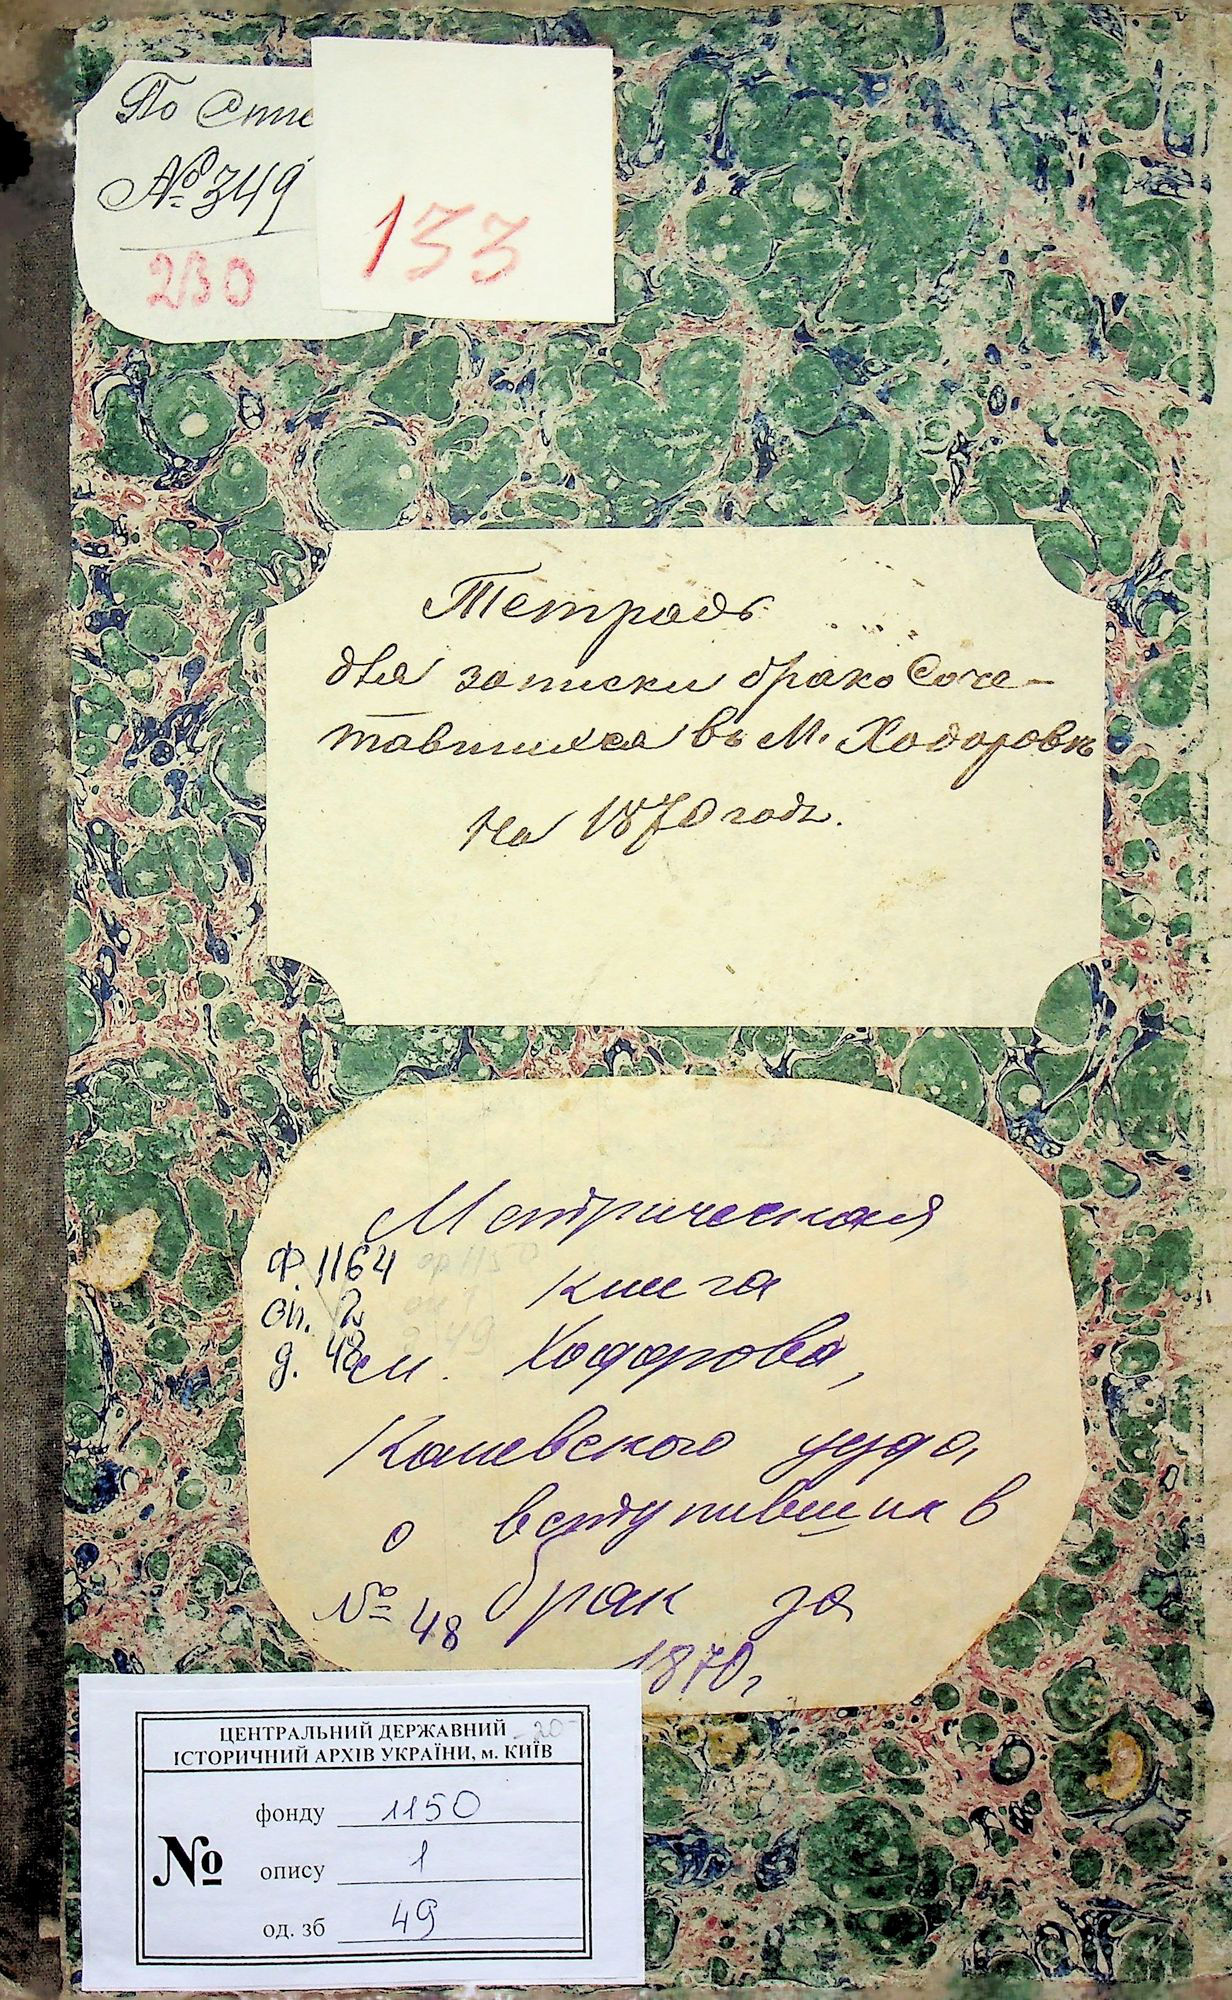 По Спис
№ 349
230
133
Тетрадь
для записки бракосоче-
тавшихся въ М. Ходоровѣ
на 1870 годъ.
Метрическая
Ф. 1164
ор 1150
книга
оп. 2
оп 1
д. 48
д 49
м. Ходорова,
Каневского уезда
о вступивших в
№ 48 брак за
1870г
ЦЕНТРАЛЬНИЙ ДЕРЖАВНИЙ
-20-
ІСТОРИЧНИЙ АРХІВ УКРАЇНИ, м. КИЇВ
фонду 1150
№ опису 1
од. зб 49